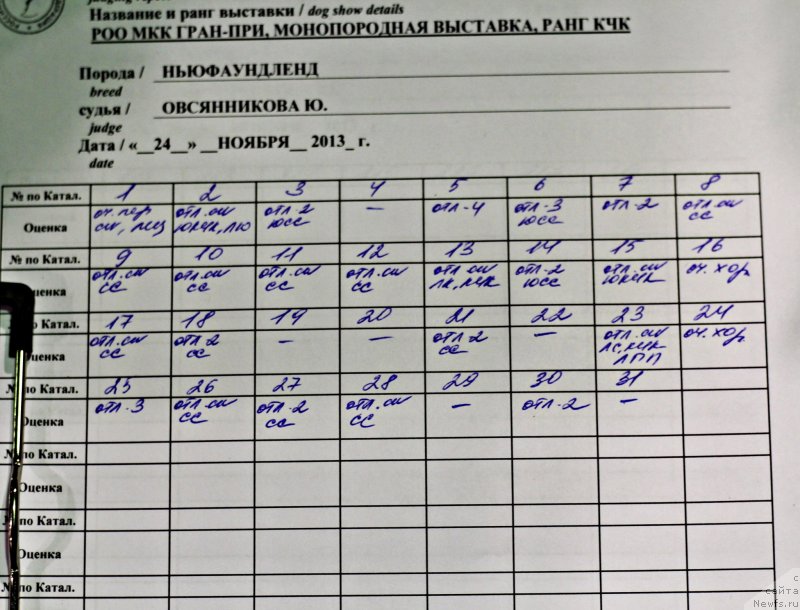 Название и ранг выставки / dog show details
РОО МКК ГРАН-ПРИ, МОНОПОРОДНАЯ ВЫСТАВКА, РАНГ КЧК
Порода / НЬЮФАУНДЛЕНД
breed
судья / ОВСЯННИКОВА Ю.
judge
Дата / «__24__» __НОЯБРЯ__ 2013_ г.
date
№ по Катал. 1 2 3 4 5 6 7 8
оч. пер отл. сw отл-2 — отл-4 отл-3 отл-2 отл. сw
Оценка сw, лщ ЮКЧК, ЛЮ ЮСС ЮСС СС
№ по Катал. 9 10 11 12 13 14 15 16
отл. сw отл. сw отл. сw отл. сw отл сw отл-2 отл. сw оч. хор
Оценка СС СС СС СС ЛК, КЧК ЮСС ЮКЧК
по Катал. 17 18 19 20 21 22 23 24
отл. сw отл-2 — — отл-2 — отл. сw оч. хор
Оценка СС СС СС ЛС, КЧК
ЛПП
№ по Катал. 25 26 27 28 29 30 31
отл-3 отл. сw отл-2 отл. сw — отл-2 —
Оценка СС СС СС
№ по Катал.
Оценка
№ по Катал.
Оценка
№ по Катал.
с
сайта
Newfs.ru